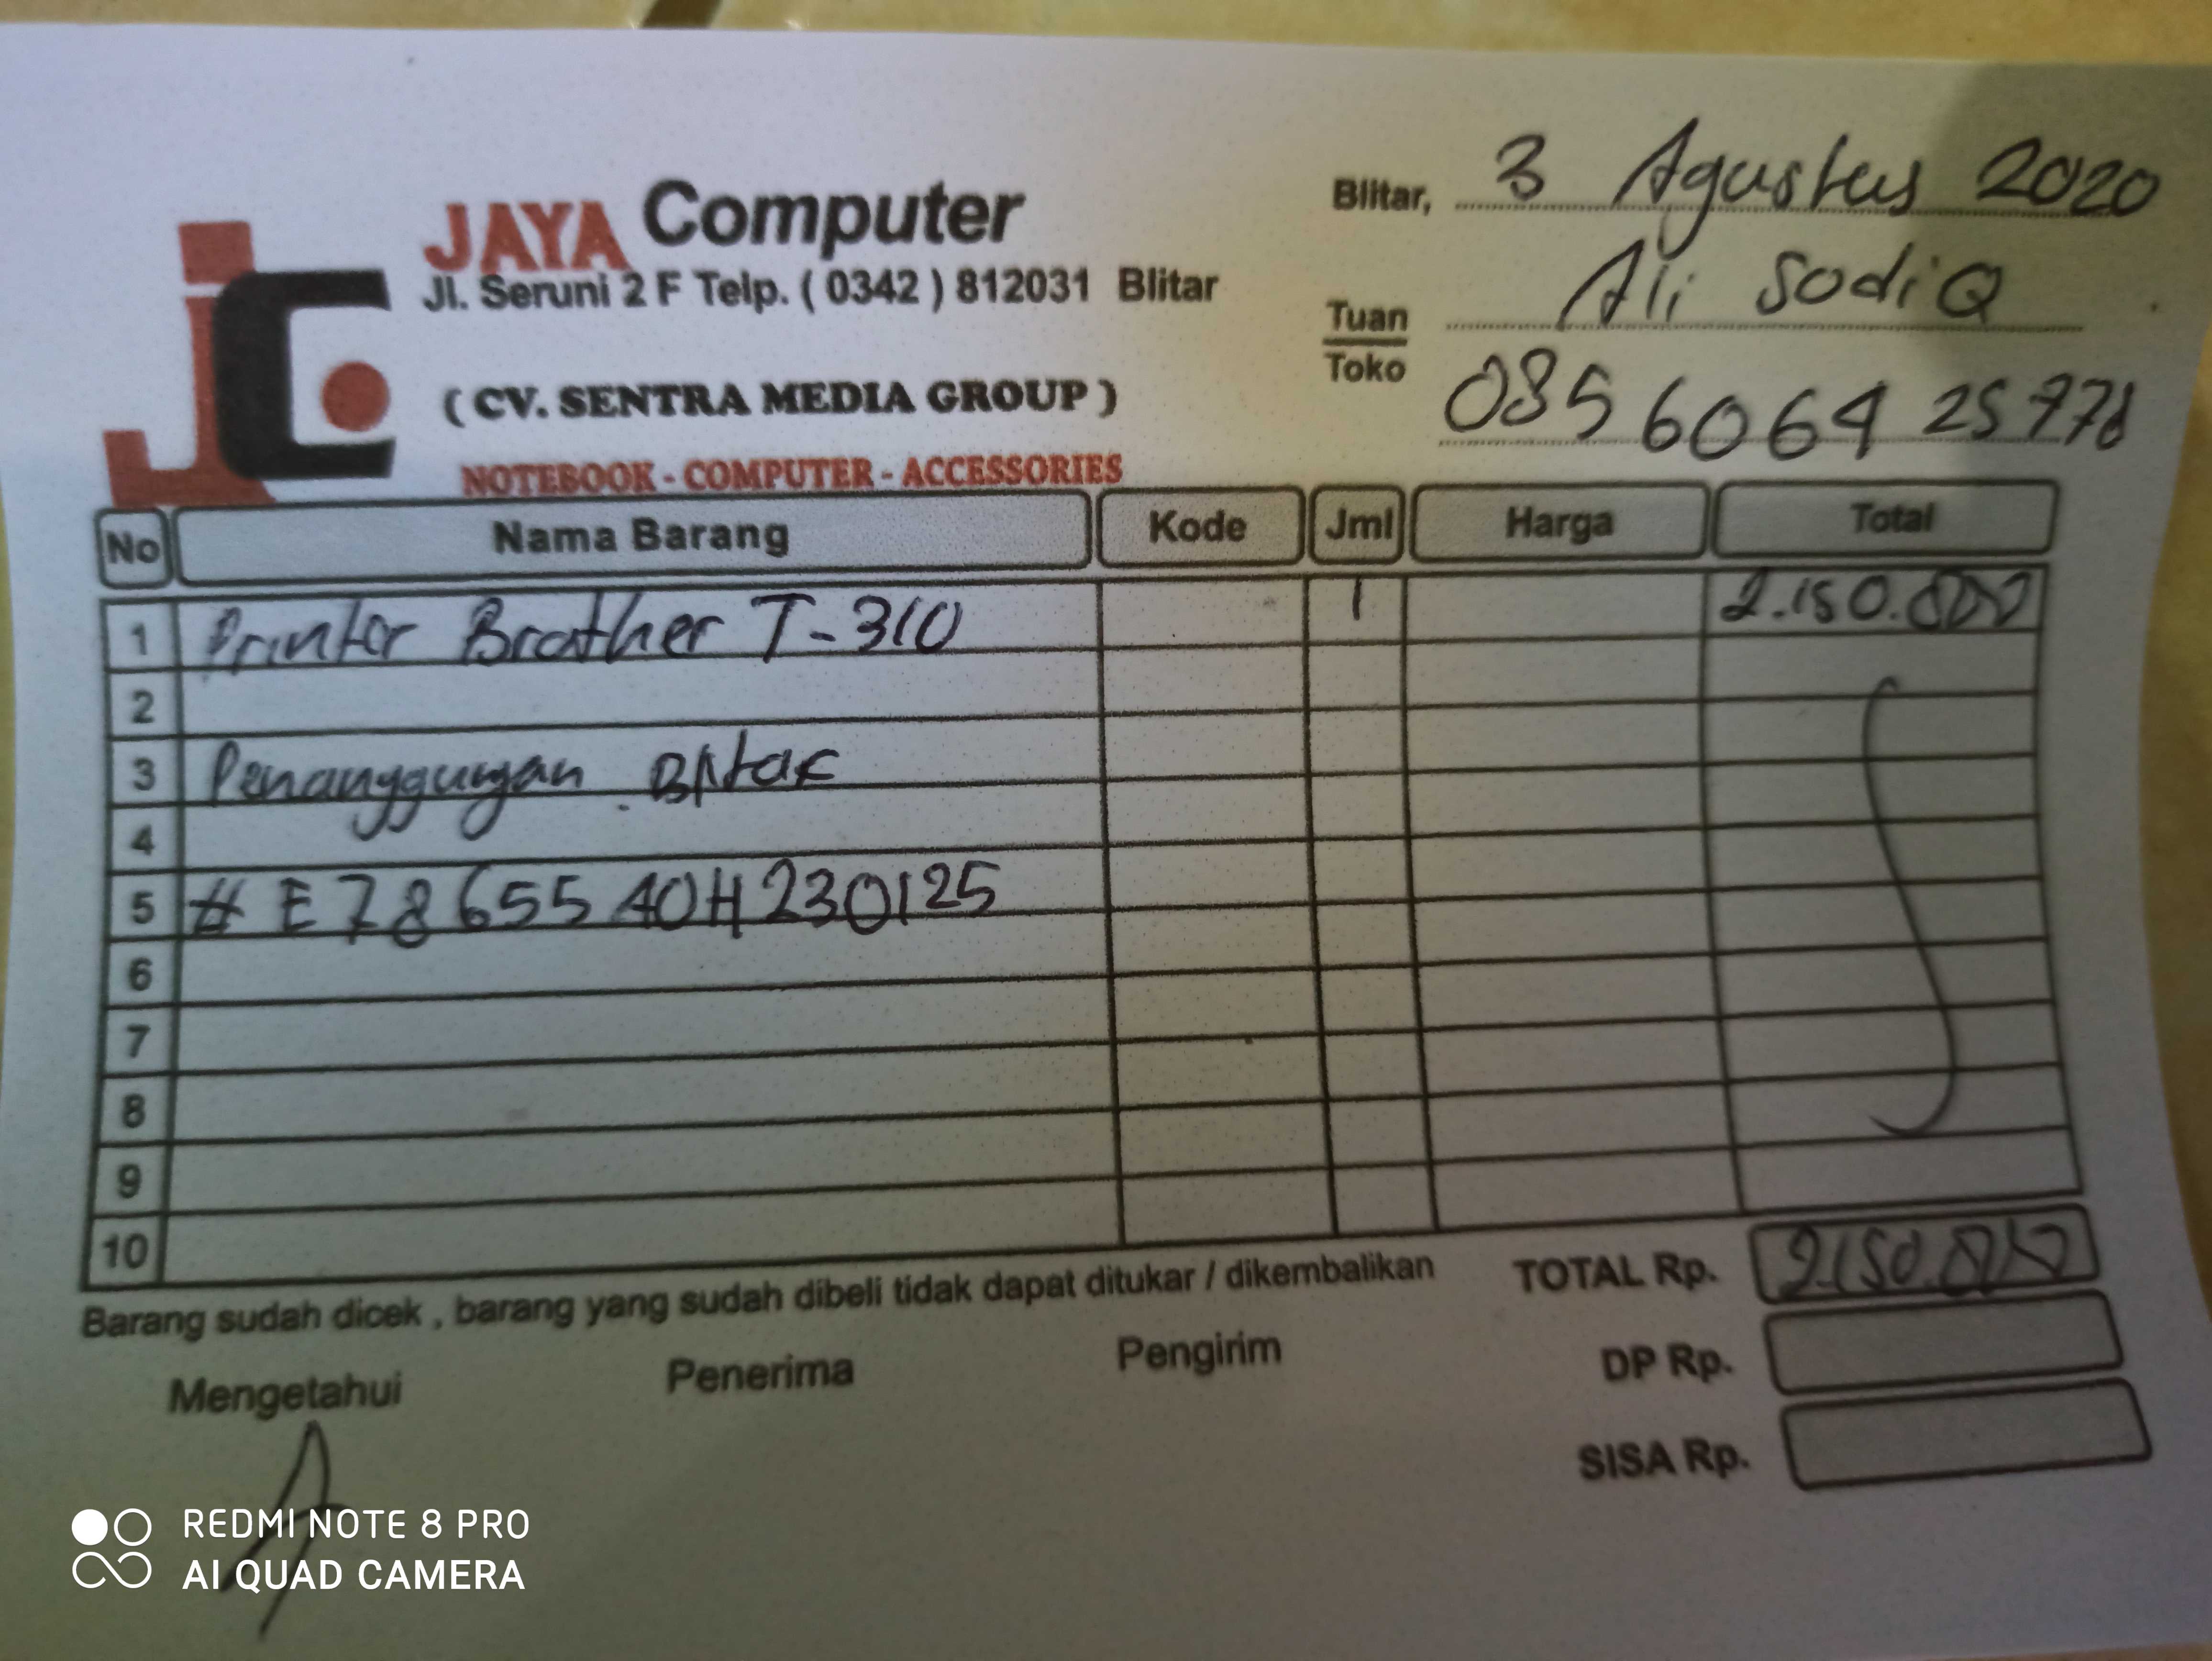 JAYA Computer
Jl. Seruni 2 F Telp. ( 0342 ) 812031 Blitar
( CV. SENTRA MEDIA GROUP )
NOTEBOOK - COMPUTER - ACCESSORIES
Blitar, 3 Agustus 2020
Tuan Ali SodiQ
Toko
085 6064 25778
No Nama Barang Kode Jml Harga Total
1 Printer Brother T-310 1 2.150.000
2
3 Penanggungan Blitar
4
5 # E7865540H230125
6
7
8
9
10
Barang sudah dicek , barang yang sudah dibeli tidak dapat ditukar / dikembalikan
TOTAL Rp. 2.150.000
Mengetahui Penerima Pengirim
DP Rp.
SISA Rp.
REDMI NOTE 8 PRO
AI QUAD CAMERA